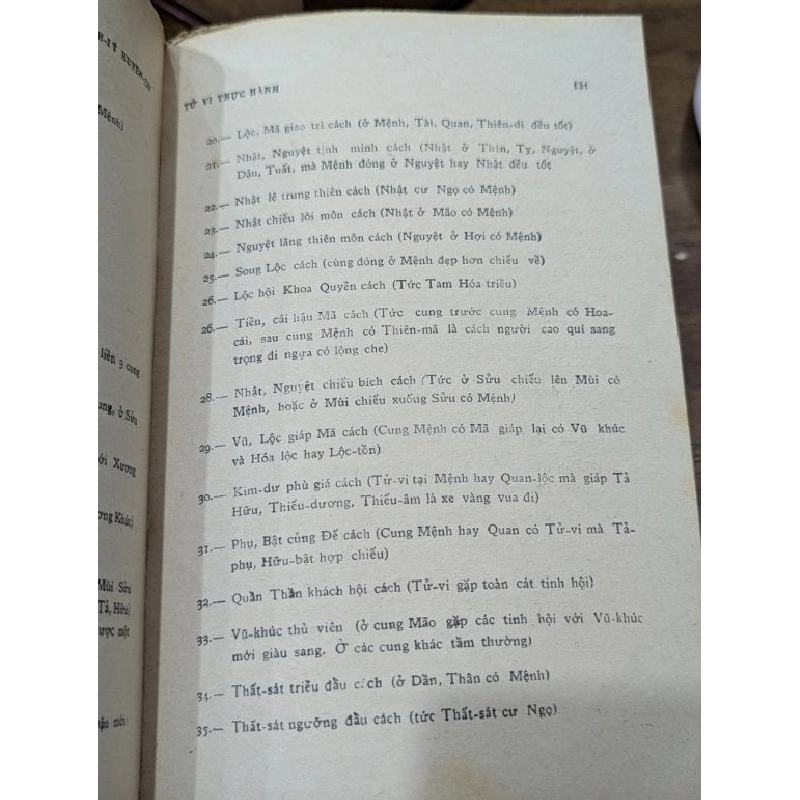 H-LÝ HUYỀN-CƠ
Mệnh)
liền 3 cung
ung, ở Sửu
với Xương
ơng Khúc)
Mùi Sửu
Tả, Hữu)
được một
TỬ VI THỰC HÀNH 131
20.— Lộc, Mã giao trì cách (ở Mệnh, Tài, Quan, Thiên-di đều tốt)
21.— Nhật, Nguyệt tịnh minh cách (Nhật ở Thìn, Tỵ, Nguyệt, ở
Dậu, Tuất, mà Mệnh đóng ở Nguyệt hay Nhật đều tốt
22.— Nhật lệ trung thiên cách (Nhật cư Ngọ có Mệnh)
23.— Nhật chiếu lôi môn cách (Nhật ở Mão có Mệnh)
24.— Nguyệt lãng thiên môn cách (Nguyệt ở Hợi có Mệnh)
25.— Soug Lộc cách (cùng đóng ở Mệnh đẹp hơn chiếu về)
26.— Lộc hội Khoa Quyền cách (Tức Tam Hóa triều)
26.— Tiền, cái hậu Mã cách (Tức cung trước cung Mệnh có Hoa-
cái, sau cung Mệnh có Thiên-mã là cách người cao quí sang
trọng đi ngựa có lọng che)
28.— Nhật, Nguyệt chiếu bích cách (Tức ở Sửu chiếu lên Mùi có
Mệnh, hoặc ở Mùi chiếu xuống Sửu có Mệnh)
29.— Vũ, Lộc giáp Mã cách (Cung Mệnh có Mã giáp lại có Vũ khúc
và Hóa lộc hay Lộc-tồn)
30.— Kim-dư phù giá cách (Tử-vi tại Mệnh hay Quan-lộc mà giáp Tả
Hữu, Thiếu-dương, Thiếu-âm là xe vàng vua đi)
31.— Phụ, Bật củng Đế cách (Cung Mệnh hay Quan có Tử-vi mà Tả-
phụ, Hữu-bật hợp chiếu)
32.— Quần Thần khách hội cách (Tử-vi gặp toàn cát tinh hội)
33.— Vũ-khúc thủ viên (ở cung Mão gặp các tinh hội với Vũ-khúc
mới giàu sang. Ở các cung khác tầm thường)
34.— Thất-sát triều đầu cách (ở Dần, Thân có Mệnh)
35.— Thất-sát ngưỡng đầu cách (tức Thất-sát cư Ngọ)